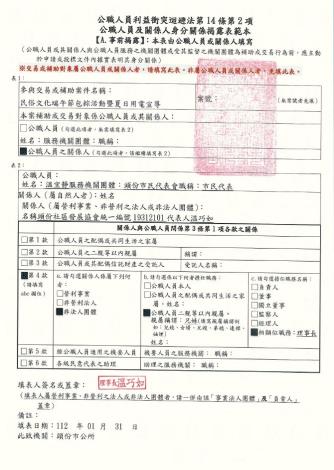 公職人員利益衝突迴避法第14條第2項
公職人員及關係人身分關係揭露表範本
【A.事前揭露】：本表由公職人員或關係人填寫
（公職人員或其關係人與公職人員服務之機關團體或受其監督之機關團體為補助或交易行為前，應主動
於申請或投標文件內據實表明其身分關係）
※交易或補助對象屬公職人員或關係人者，請填寫此表。非屬公職人員或關係人者，免填此表。
表1：
參與交易或補助案件名稱：
案號：
（無案號者免填）
民俗文化端午節包粽活動暨夏日用電宣導
本案補助或交易對象係公職人員或其關係人：
□公職人員（勾選此項者，無需填寫表2）
姓名：
服務機關團體：
職稱：
■公職人員之關係人（勾選此項者，請繼續填寫表2）
表2：
公職人員：
姓名：溫宜靜
服務機關團體：頭份市民代表會
職稱：市民代表
關係人（屬自然人者）：姓名
關係人（屬營利事業、非營利之法人或非法人團體）：
名稱
頭份社區發展協會
統一編號19312101
代表人溫巧如
關係人與公職人員間係第3條第1項各款之關係
□第1款
公職人員之配偶或共同生活之家屬
□第2款
公職人員之二親等以內親屬
稱謂：
□第3款
公職人員或其配偶信託財產之受託人
受託人名稱：
■第4款
（請填寫
abc欄位）
a.請勾選關係人係屬下列何者：
□營利事業
□非營利法人
■非法人團體
b.請勾選係以下何者擔任職務：
□公職人員本人
□公職人員之配偶或共同生活之家屬。姓名：
■公職人員二親等以內親屬。
c.請勾選擔任職務名稱：
□負責人
□董事
□獨立董事
□監察人
□經理人
■相類似職務：理事長
□第5款
經公職人員進用之機要人員
機要人員之服務機關：
職稱：
□第6款
各級民意代表之助理
助理之服務機關：
職稱：
填表人簽名或蓋章：
理事長溫巧如
（填表人屬營利事業、非營利之法人或非法人團體者，請一併由該「事業法人團體」及「負責人」
蓋章）
備註：
填表日期：112 年 01 月 31 日
此致機關：頭份市公所